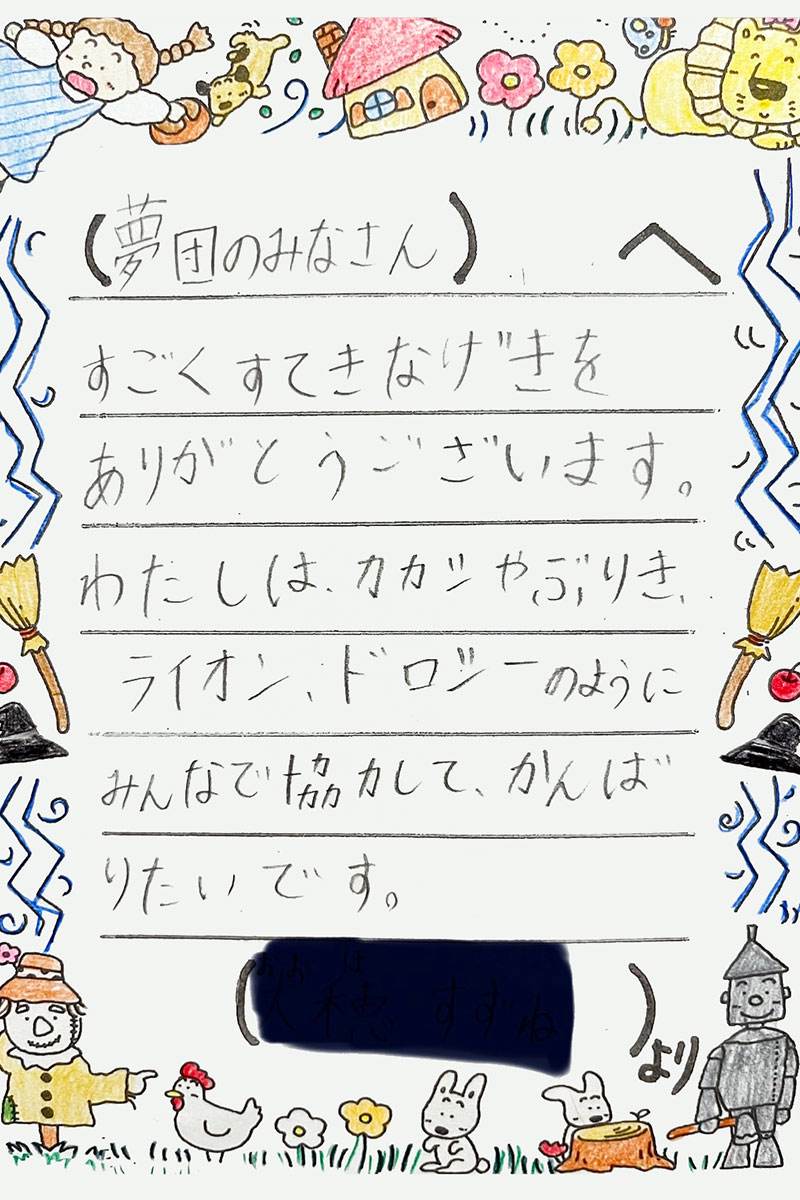 (夢団のみなさん) へ
すごくすてきなげきを
ありがとうございます。
わたしは、カカシやぶりき、
ライオン、ドロシーのように
みんなで協力して、がんば
りたいです。
( ) より